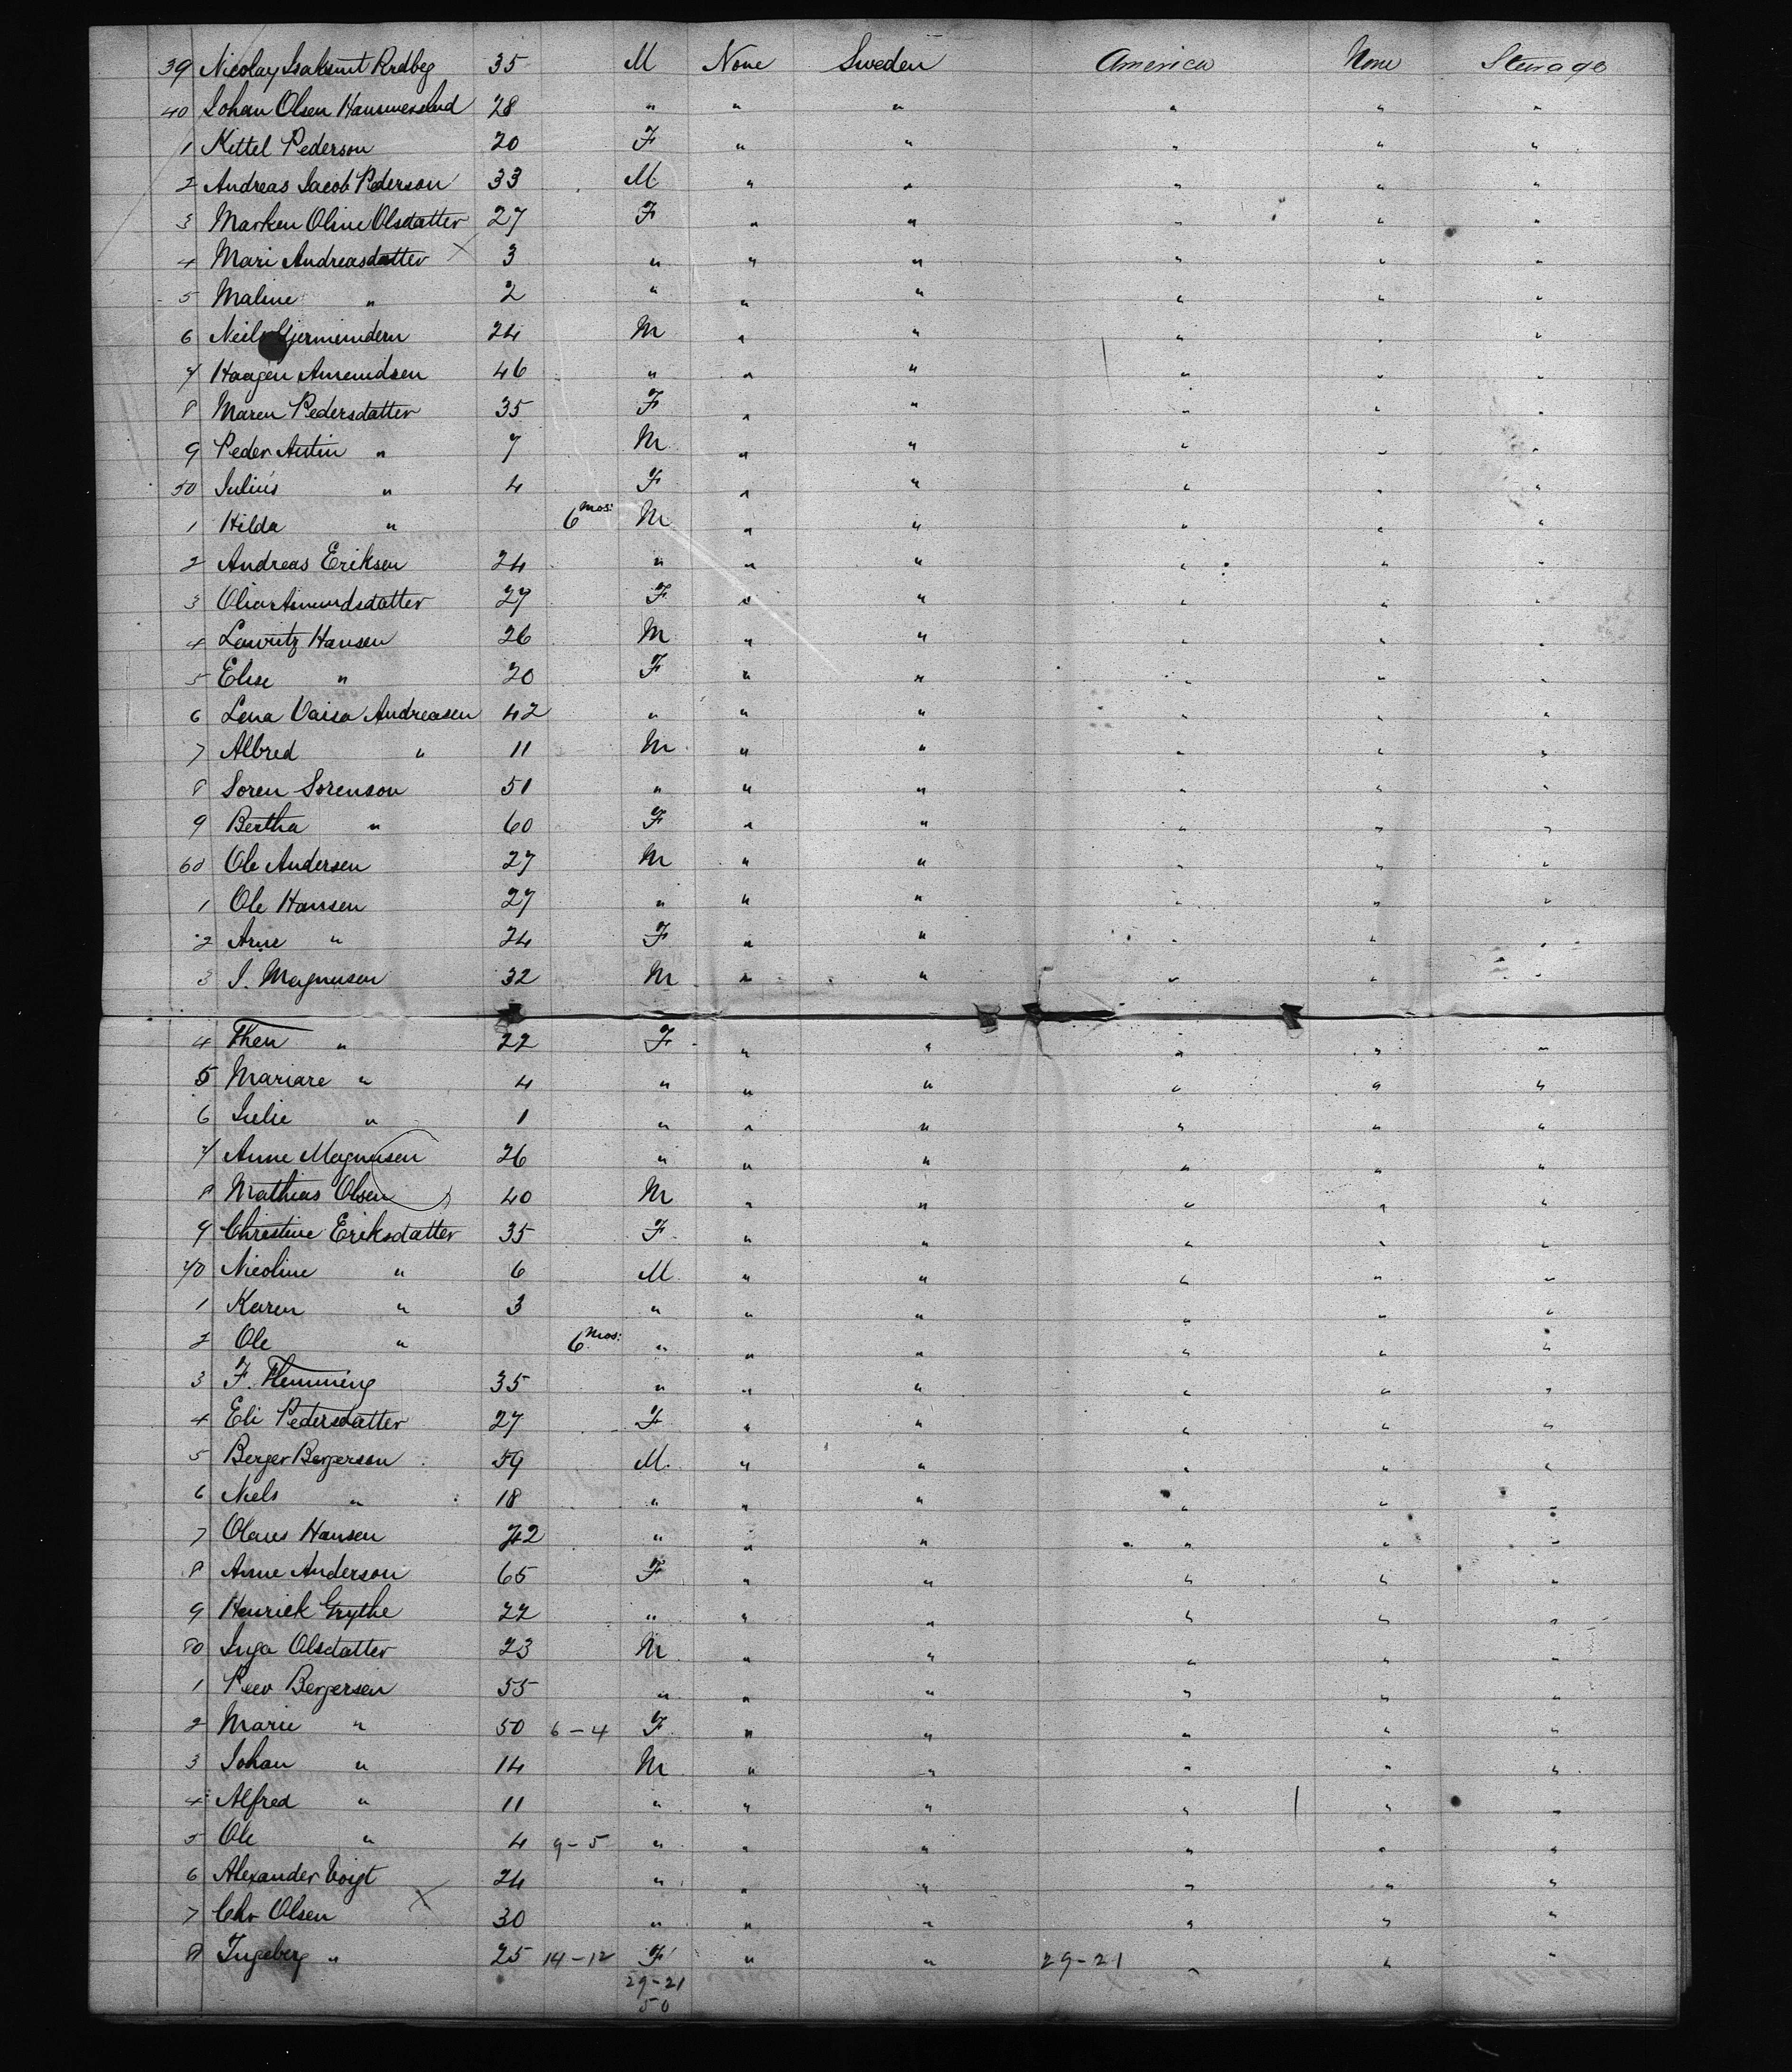 39 Nicolay Isaksint Rrdbeg 35 M None Sweden America None Steerage
40 Johan Olsen Hammerslund 28 " " " " " "
1 Kittel Pederson 20 F " " " " "
2 Andreas Jacob Pederson 33 M " " " " "
3 Marken Oline Olsdatter 27 F " " " " "
4 Mari Andreasdatter X 3 " " " " " "
5 Maline " 2 " " " " " "
6 Neils 24 M " " " " "
7 Haagen Amundsen 46 " " " " " "
8 Maren Pedersdatter 35 F " " " " "
9 Peder Antin " 7 M " " " " "
50 Julius " 4 F " " " " "
1 Hilda " 6 mos: M " " " " "
2 Andreas Eriksen 24 " " " " " "
3 Olia Amundsdatter 27 F " " " " "
4 Lauritz Hansen 26 M " " " " "
5 Elise " 20 F " " " " "
6 Lena Vaisa Andreasen 42 " " " " " "
7 Albred " 11 M " " " " "
8 Soren Sorenson 51 " " " " " "
9 Bertha " 60 F " " " " "
60 Ole Andersen 27 M " " " " "
1 Ole Hansen 27 " " " " " "
2 Arne " 24 F " " " " "
3 J. Magnusen 32 M " " " " "
4 Then " 22 F " " " " "
5 Mariare " 4 " " " " " "
6 Julie " 1 " " " " " "
7 Anne Magnusen 26 " " " " " "
8 Mathias Olsen 40 M " " " " "
9 Christine Eriksdatter 35 F " " " " "
70 Nicoline " 6 M " " " " "
1 Karen " 3 " " " " " "
2 Ole " 6 mos: " " " " " "
3 F. Flemming 35 " " " " " "
4 Eli Pedersdatter 27 F " " " " "
5 Berger Bergerson 59 M " " " " "
6 Niels " 18 " " " " " "
7 Olaus Hansen 42 " " " " " "
8 Anne Anderson 65 F " " " " "
9 Henrick Grythe 22 " " " " " "
80 Inga Olsdatter 23 M " " " " "
1 Peev Bergersen 55 " " " " " "
2 Marie " 50 6-4 F " " " " "
3 Johan " 14 M " " " " "
4 Alfred " 11 " " " " " "
5 Ole " 4 9-5 " " " " " "
6 Alexander Voigt 24 " " " " " "
7 Chr Olsen X 30 " " " " " "
8 Ingeberg " 25 14-12 F " " 29-21 " " "
29-21
50